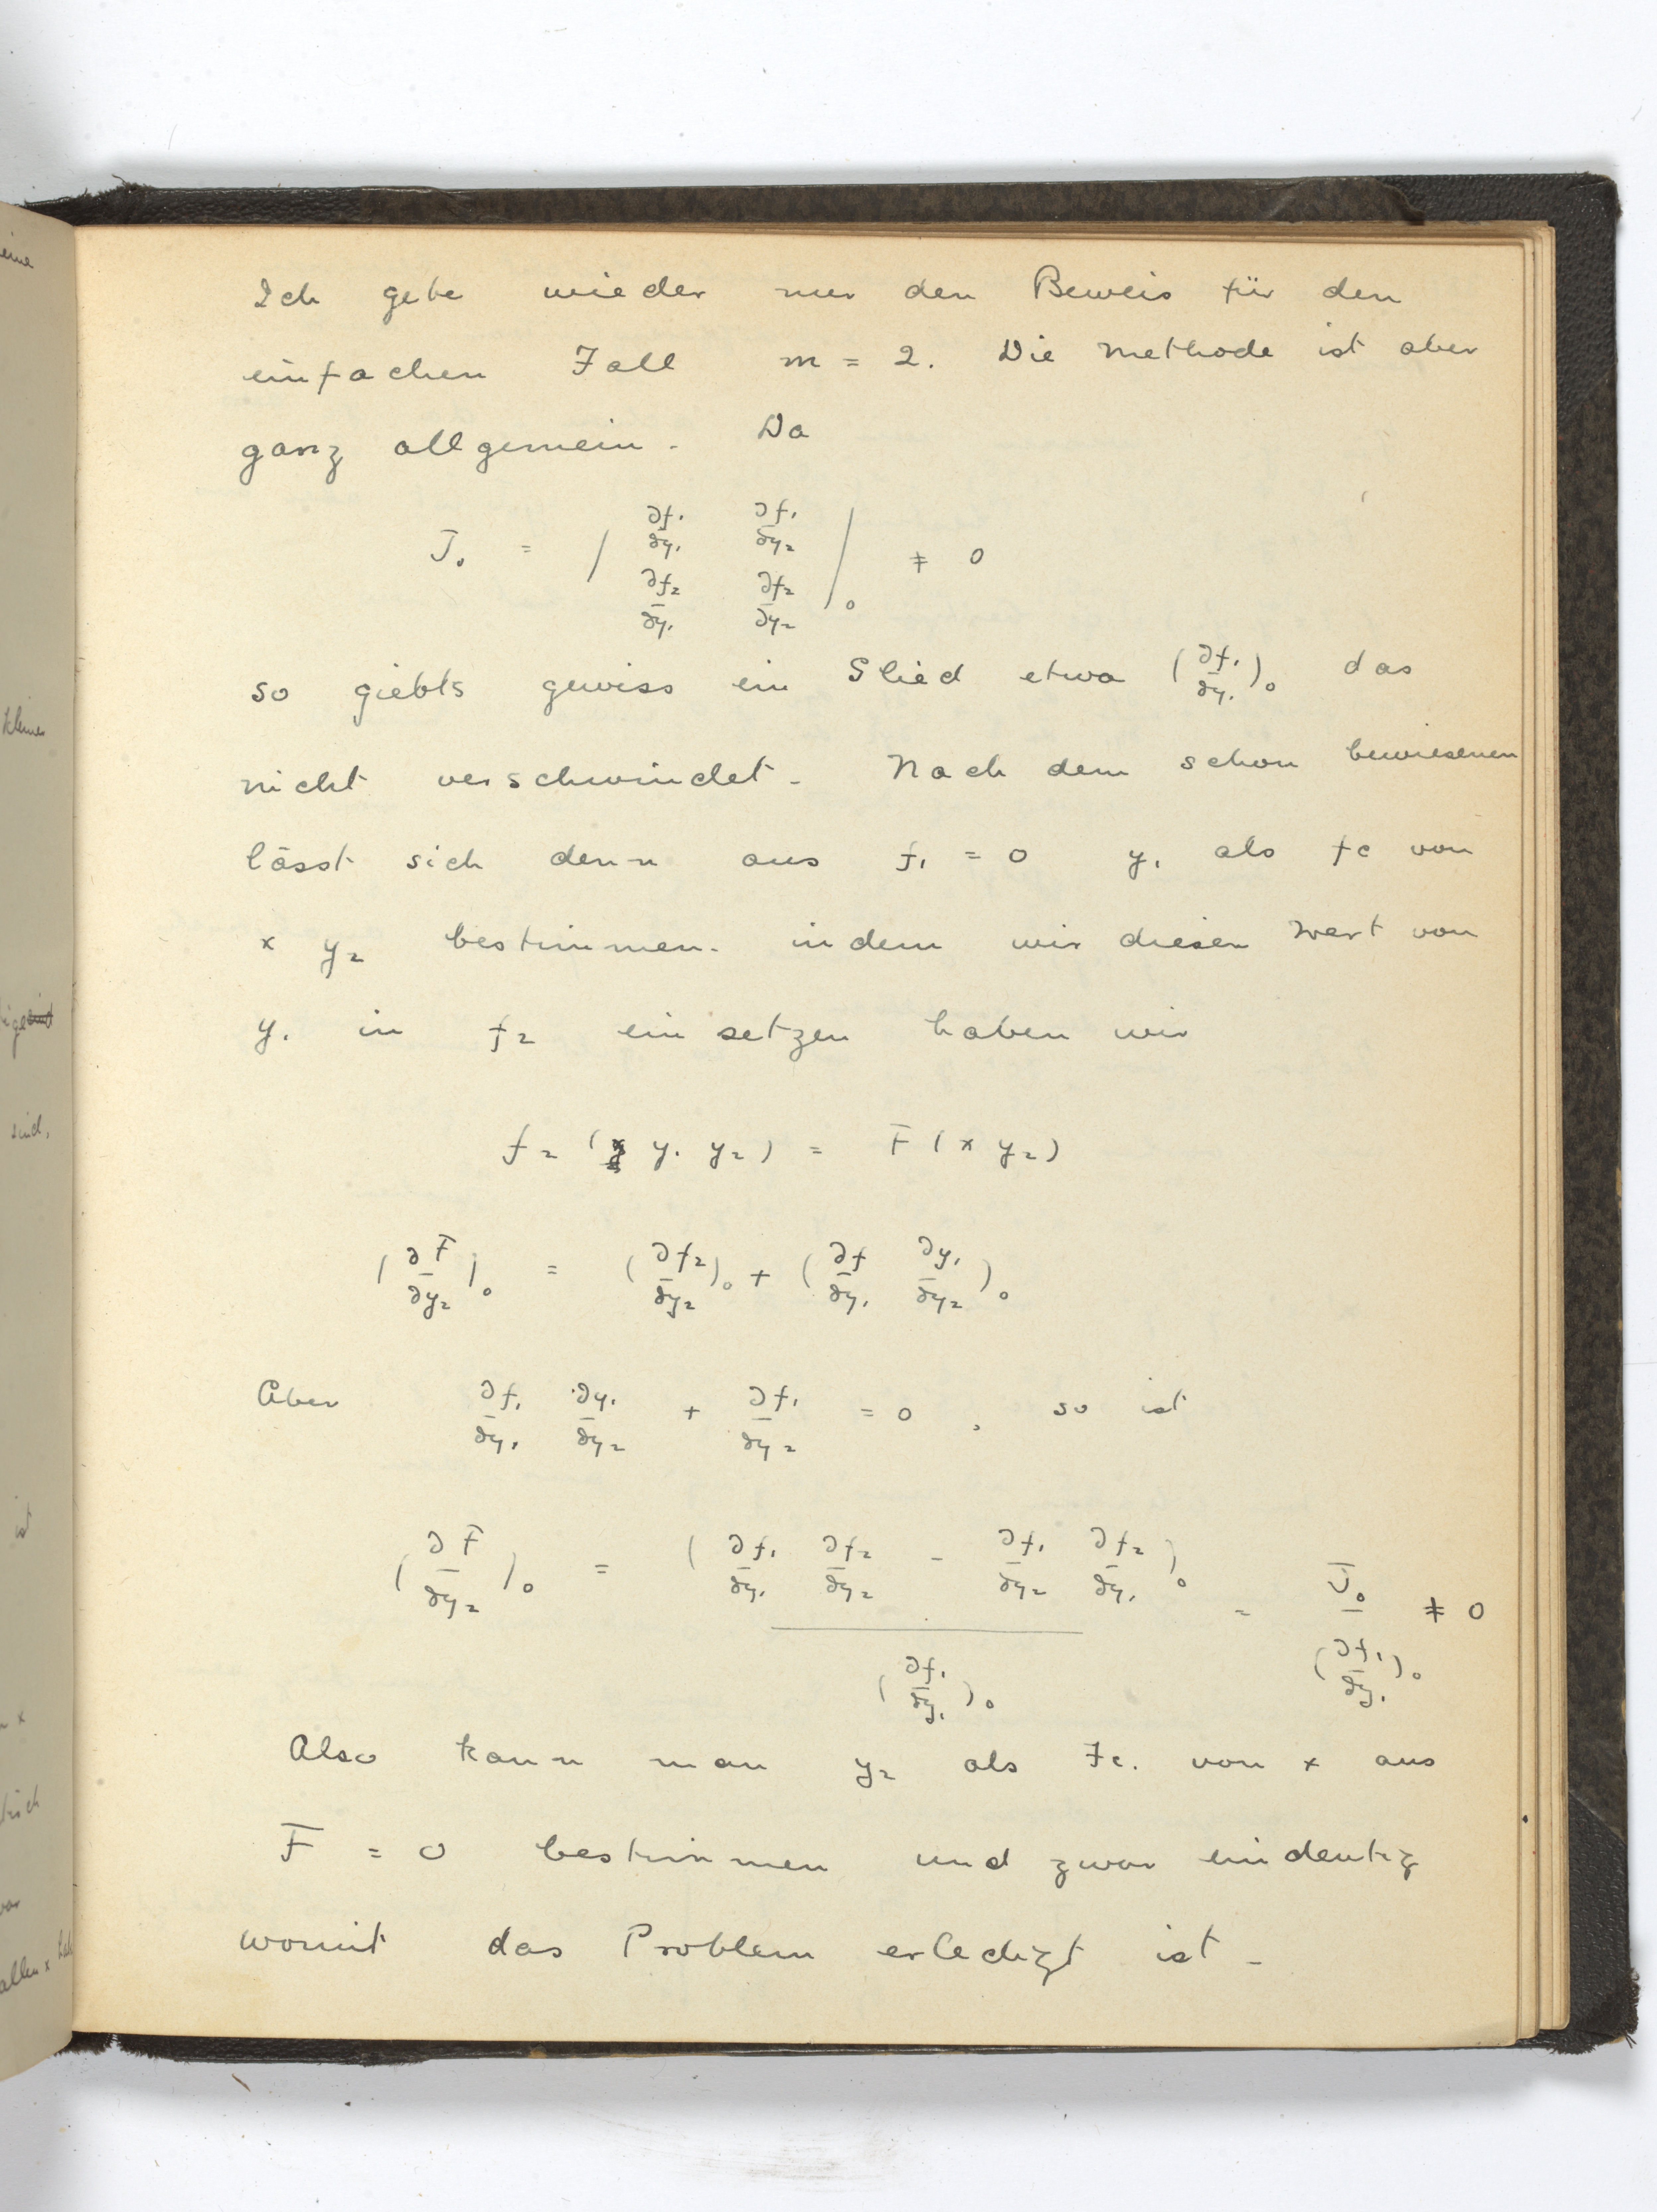 Ich gebe wieder nur den Beweis für den
einfachen Fall m = 2. Die Methode ist aber
ganz allgemein. Da
J₀ = | ∂f₁/∂y₁ ∂f₁/∂y₂ |
| ∂f₂/∂y₁ ∂f₂/∂y₂ |₀ ≠ 0
so giebts gewiss ein Glied etwa (∂f₁/∂y₁)₀ das
nicht verschwindet. Nach dem schon bewiesenen
lässt sich denn aus f₁ = 0 y₁ als fc von
x y₂ bestimmen. indem wir diesen Wert von
y₁ in f₂ einsetzen haben wir
f₂ (x y₁ y₂) = F (x y₂)
(∂F/∂y₂)₀ = (∂f₂/∂y₂)₀ + (∂f/∂y₁ ∂y₁/∂y₂)₀
Aber ∂f₁/∂y₁ ∂y₁/∂y₂ + ∂f₁/∂y₂ = 0, so ist
(∂F/∂y₂)₀ = (∂f₁/∂y₁ ∂f₂/∂y₂ - ∂f₁/∂y₂ ∂f₂/∂y₁)₀ / (∂f₁/∂y₁)₀ = J₀ / (∂f₁/∂y₁)₀ ≠ 0
Also kann man y₂ als Fc. von x aus
F = 0 bestimmen und zwar eindeutig
womit das Problem erledigt ist.